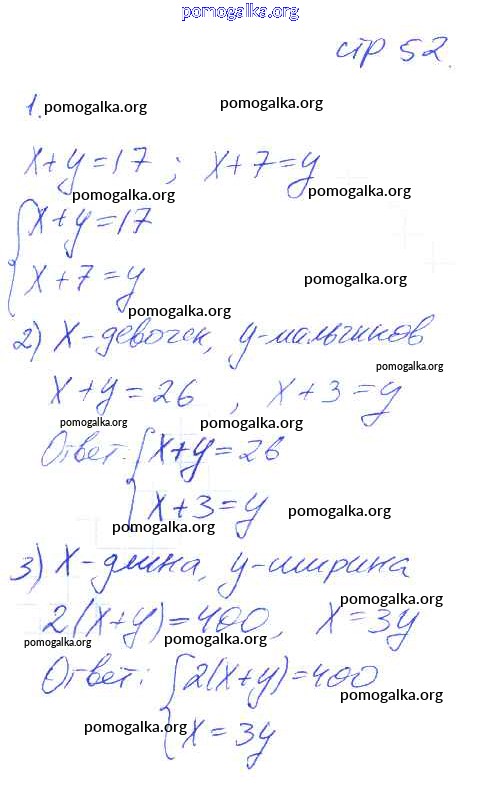 pomogalka.org
стр 52.
1.
pomogalka.org pomogalka.org
x+y=17 ; x+7=y
pomogalka.org pomogalka.org
{x+y=17
x+7=y
pomogalka.org
pomogalka.org
2) x-девочек, y-мальчиков
pomogalka.org
x+y=26 , x+3=y
pomogalka.org pomogalka.org
Ответ: {x+y=26
x+3=y
pomogalka.org pomogalka.org
3) x-длина, y-ширина
pomogalka.org
2(x+y)=400, x=3y
pomogalka.org pomogalka.org
Ответ: {2(x+y)=400
pomogalka.org
x=3y
pomogalka.org